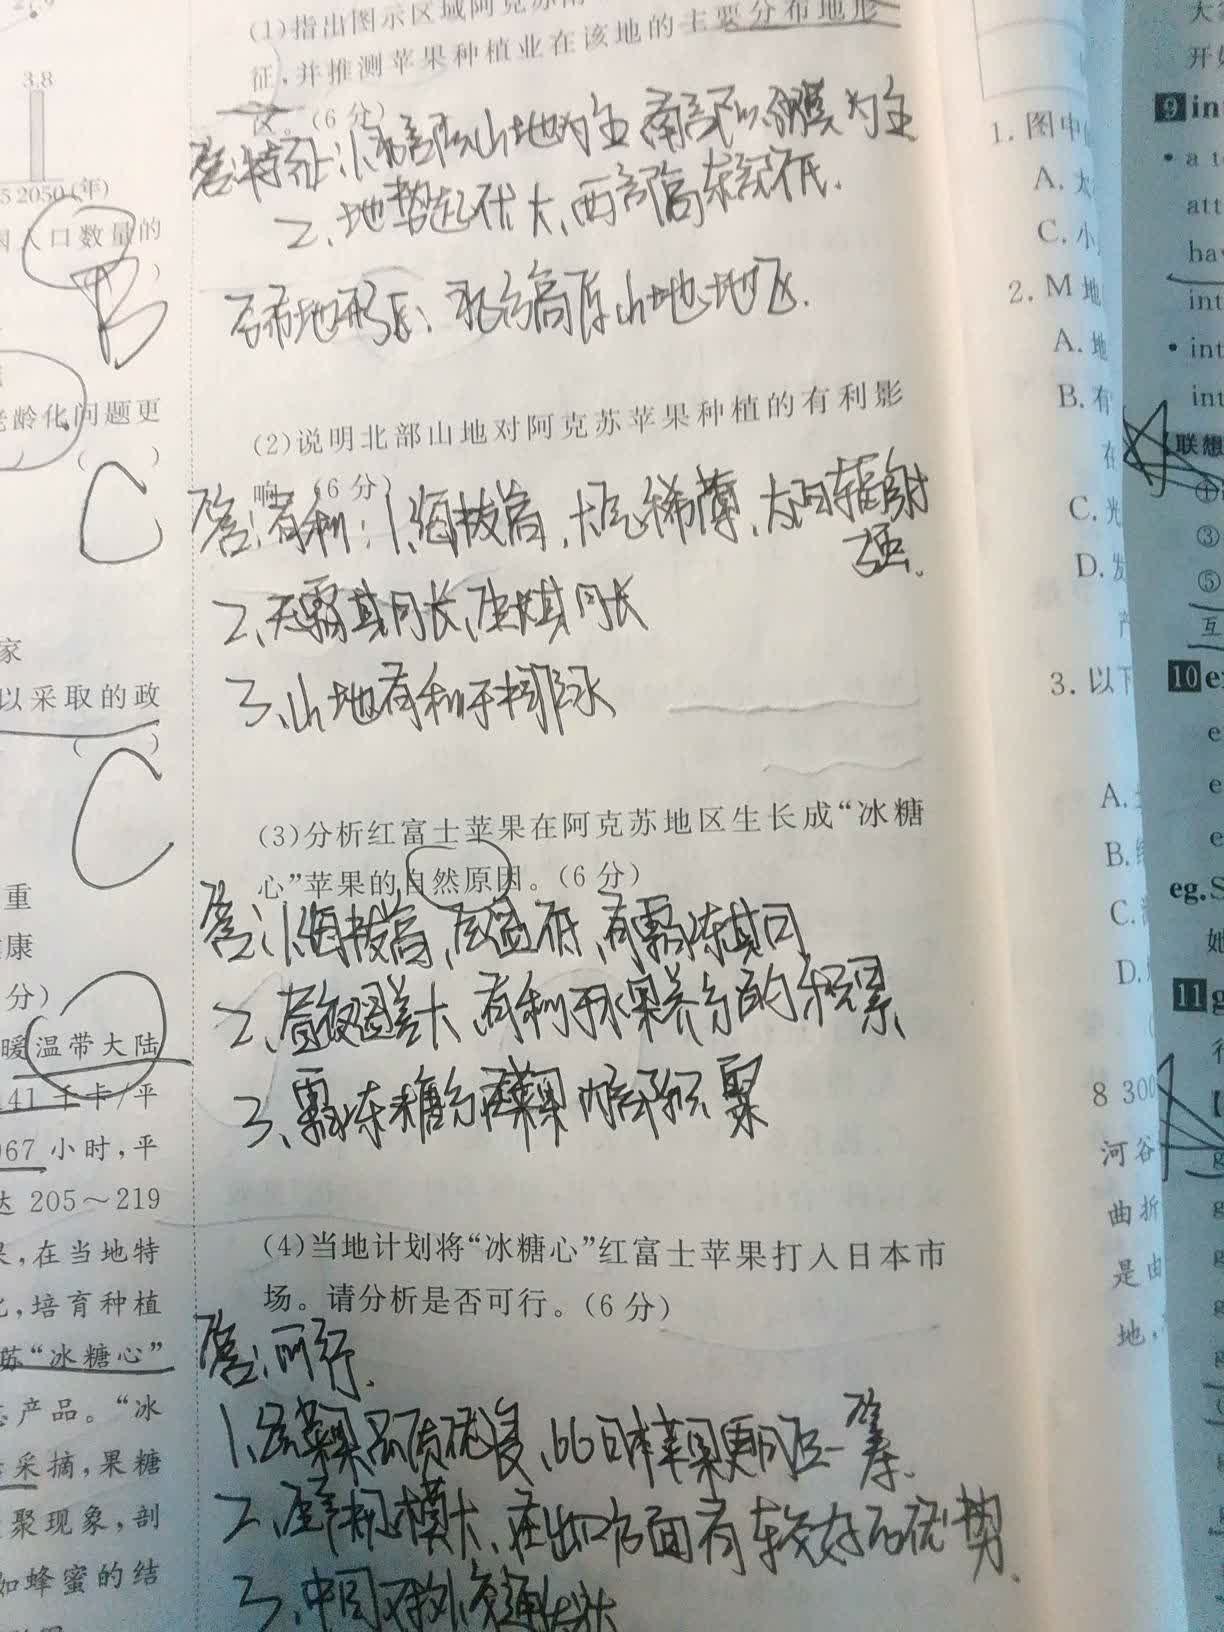 3.8
5 2050(年)
人口数量的
B
老龄化问题更
C
家
以采取的政
C
重
康
分)
暖温带大陆
141 千卡/平
967 小时,平
达 205～219
果,在当地特
培育种植
苏“冰糖心”
产品。“冰
采摘,果糖
聚现象,剖
如蜂蜜的结
(1)指出图示区域阿克苏
征,并推测苹果种植业在该地的主要分布地形
区。(6分)
答:特征:1、北部以山地为主,南部以沙漠为主
2、地势起伏大,西部高东部低.
分布地形区:
山地地区.
(2)说明北部山地对阿克苏苹果种植的有利影
响。(6分)
答:有利:1、海拔高,大气稀薄,太阳辐射
强.
2、无霜期长,生长期长
3、山地有利于排水
(3)分析红富士苹果在阿克苏地区生长成“冰糖
心”苹果的自然原因。(6分)
答:1、海拔高,气温低,有霜冻期
2、昼夜温差大,有利于水果养分的积累
3、霜冻糖分在苹果内部积聚
(4)当地计划将“冰糖心”红富士苹果打入日本市
场。请分析是否可行。(6分)
答:可行.
1、苹果品质优良,比日本苹果更
一筹.
2、生产规模大,在出口方面有较好的优势.
3、中国对外交通
1. 图中
A. 大
C. 小
2. M 地
A. 地
B. 有
在
C. 光
D. 发
产
3. 以下
A.
B.
C.
D.
8 300
河谷
曲折
是由
地,
开始
9 in
• a t
att
hav
int
• int
int
联想
①
③
⑤
互
10 e
e
e
e
eg. S
她
11 g